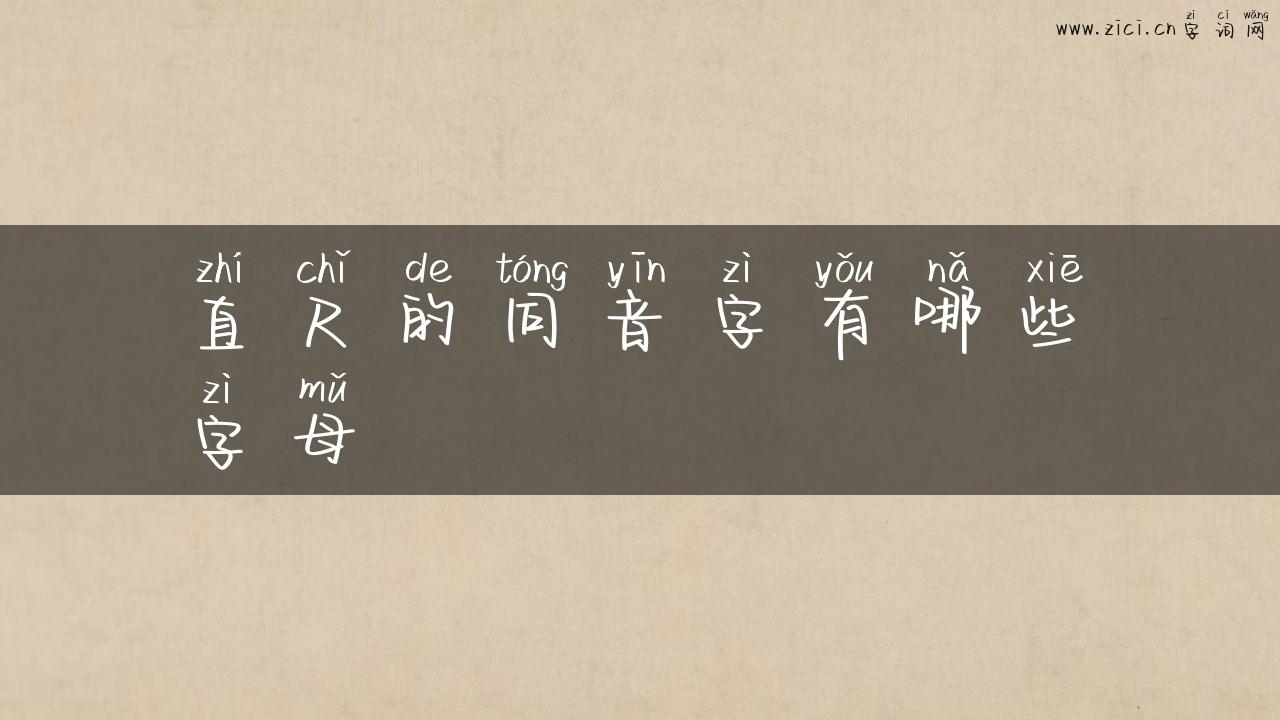 zì cí wǎng
www.zici.cn 字词网
zhí chǐ de tóng yīn zì yǒu nǎ xiē
直尺的同音字有哪些
zì mǔ
字母